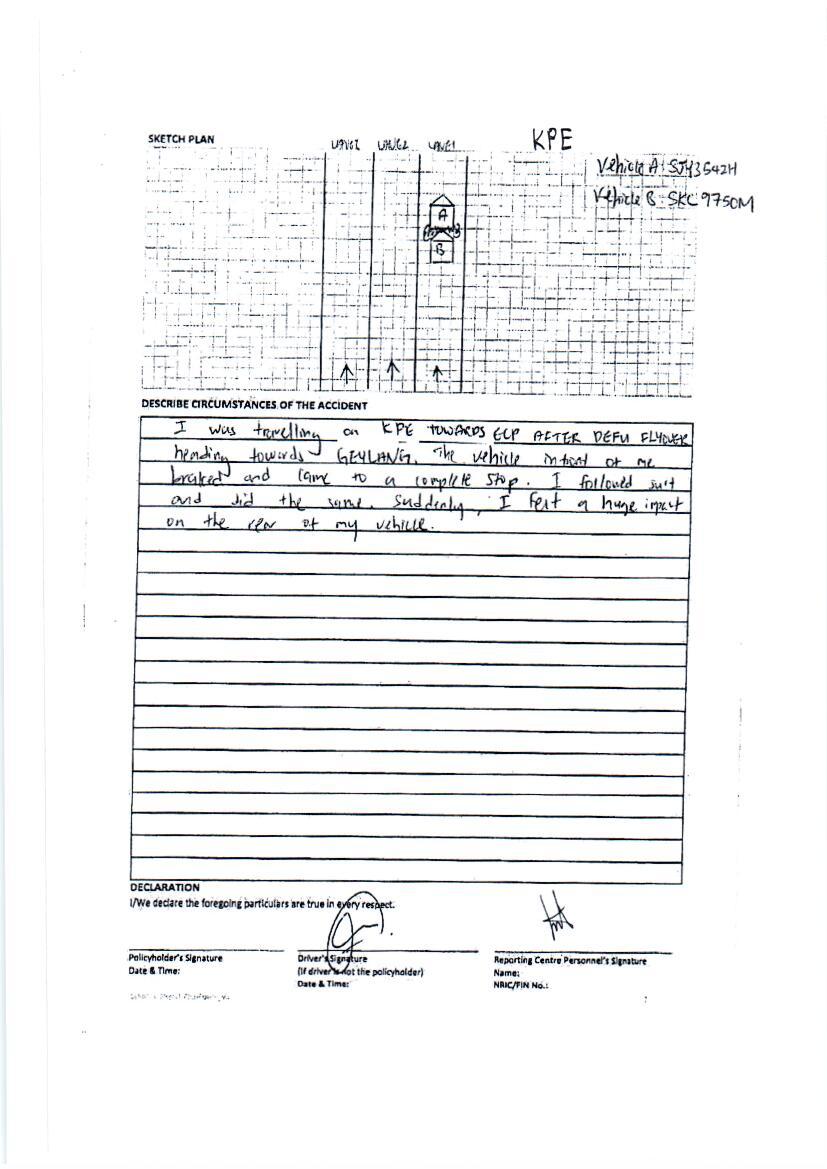 SKETCH PLAN
KPE
LANE2 LANE1
Vehicle A: SJY3542H
Vehicle B: SKC 9750M
A
B
DESCRIBE CIRCUMSTANCES OF THE ACCIDENT
I was travelling on KPE TOWARDS ECP AFTER DEFU FLYOVER
heading towards GEYLANG. The vehicle infront of me
braked and came to a complete stop. I followed suit
and did the same. Suddenly, I felt a huge impact
on the rear of my vehicle.
DECLARATION
I/We declare the foregoing particulars are true in every respect.
Policyholder's Signature
Date & Time:
Driver's Signature
(If driver is not the policyholder)
Date & Time:
Reporting Centre Personnel's Signature
Name:
NRIC/FIN No.: